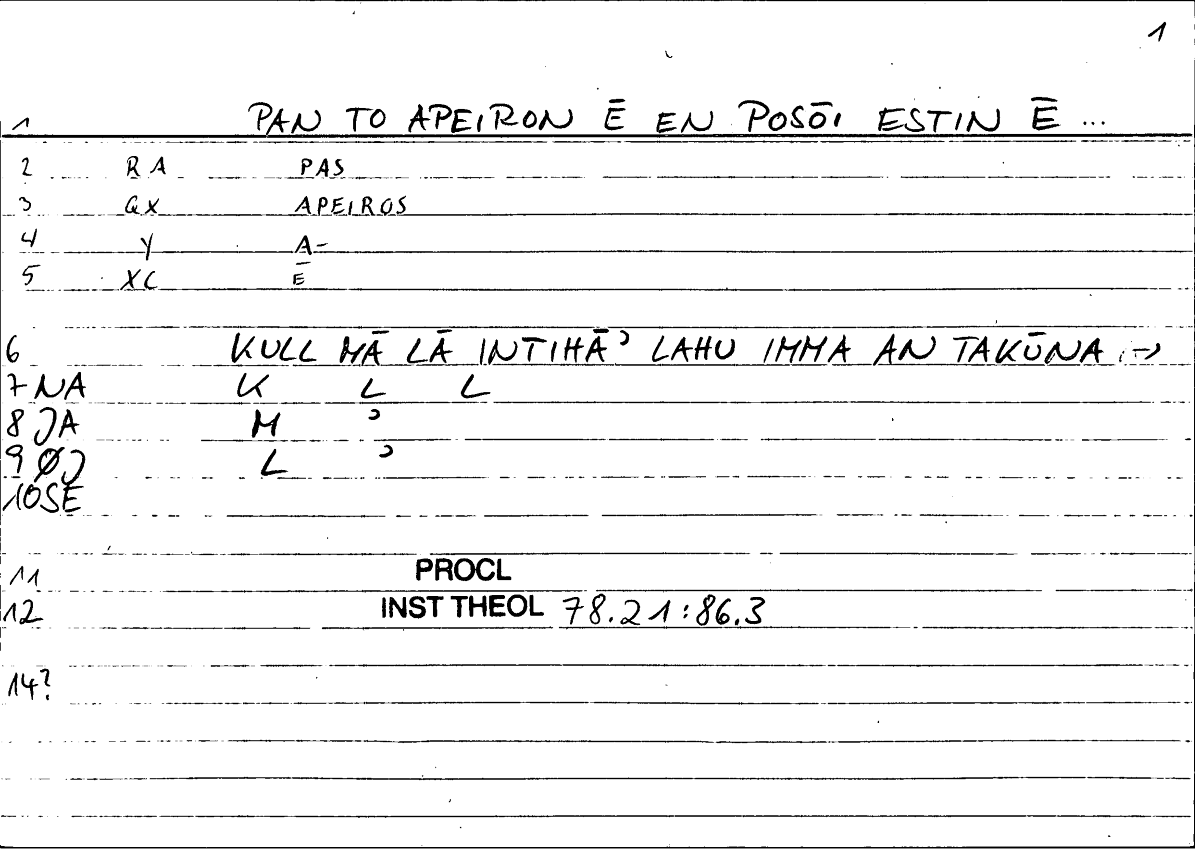 1
1 PAN TO APEIRON Ē EN POSŌI ESTIN Ē ...
2 RA PAS
3 QX APEIROS
4 Y A-
5 XC Ē
6 KULL MĀ LĀ INTIHĀʾ LAHU IMMA AN TAKŪNA →
7 NA K L L
8 JA M ʾ
9 ØJ L ʾ
10 SE
11 PROCL
12 INST THEOL 78.21:86.3
14?